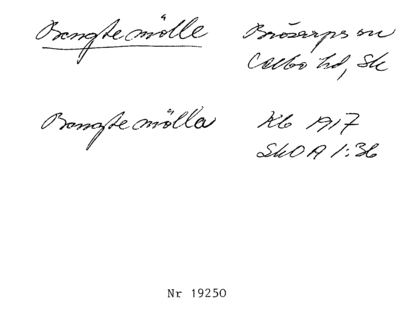 Bengtemölle Brösarps sn
Albo hd, Sk
Bengtemölla Kb 1917
SkO A 1:36
Nr 19250